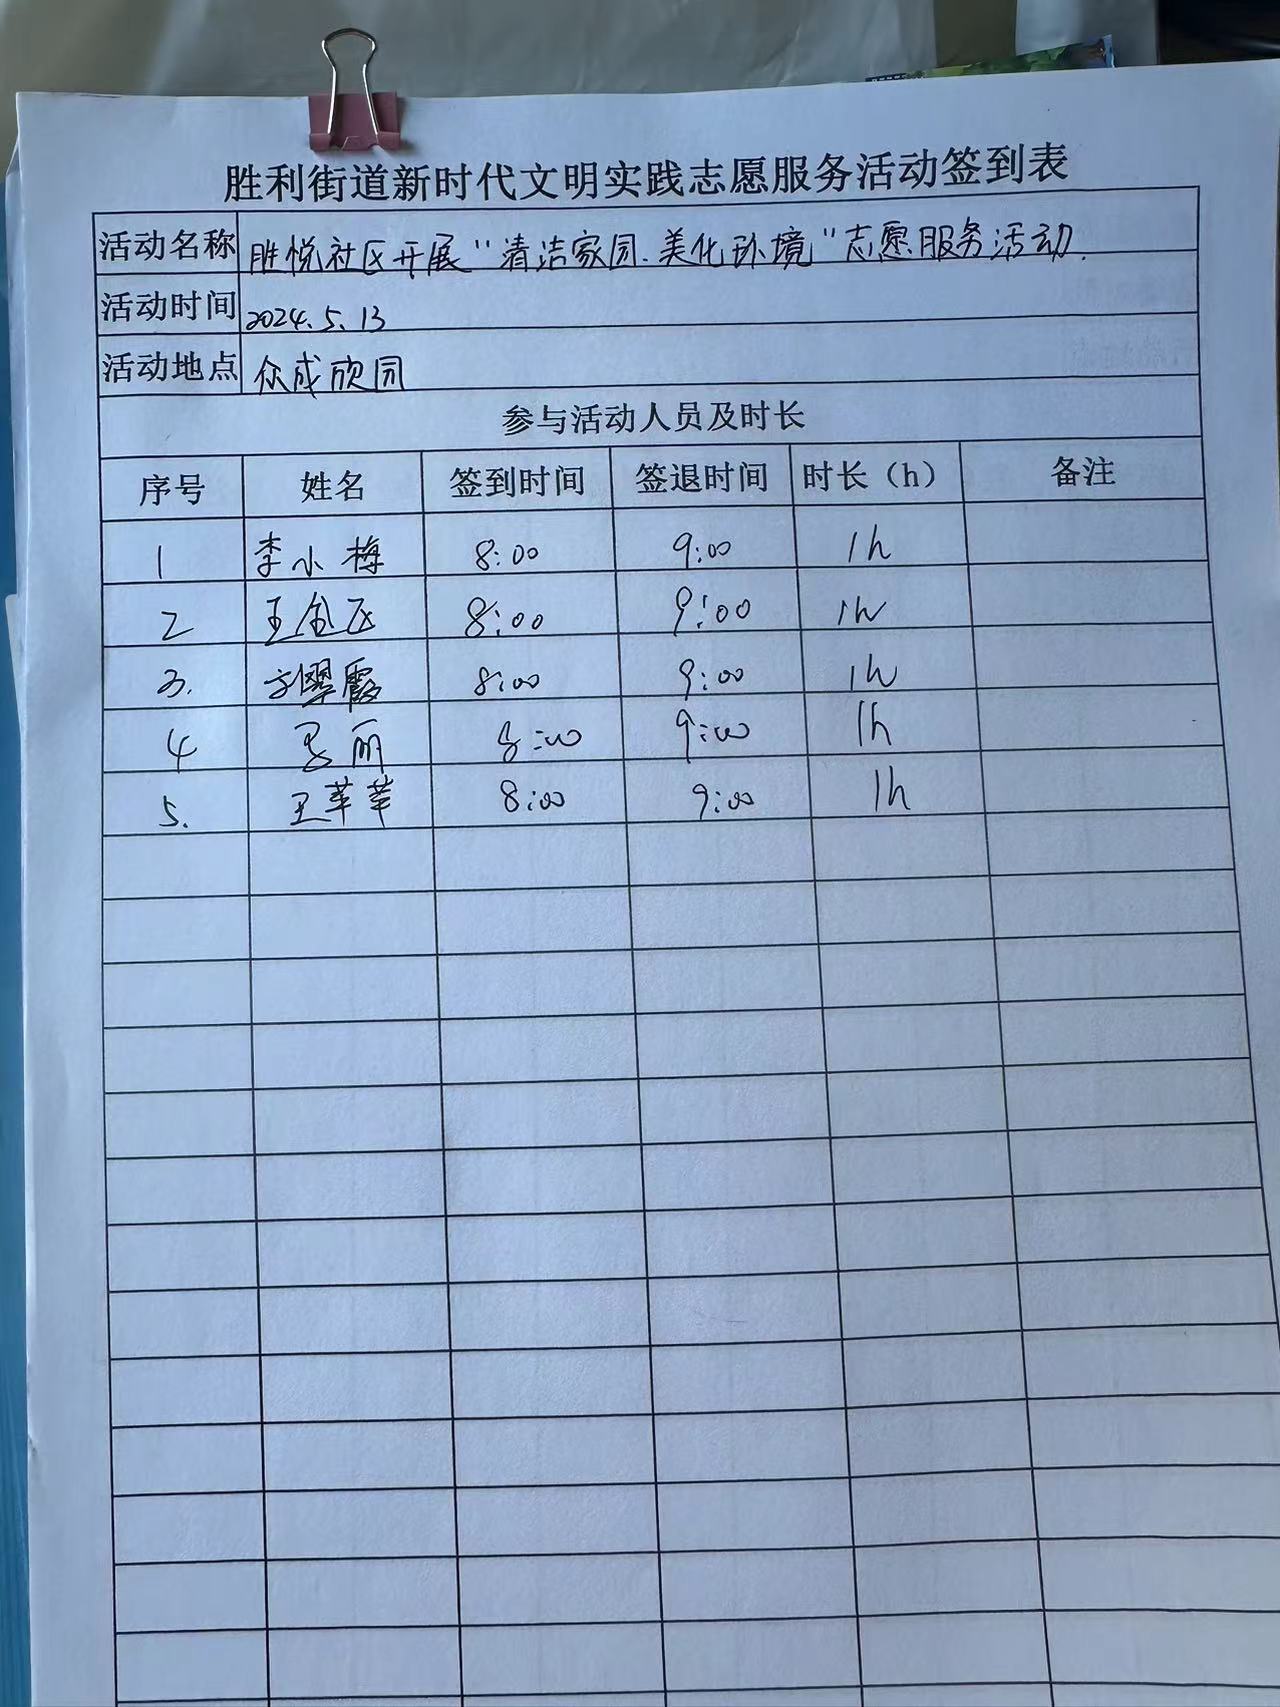 胜利街道新时代文明实践志愿服务活动签到表
活动名称 胜悦社区开展“清洁家园.美化环境”志愿服务活动.
活动时间 2024.5.13
活动地点 众成欣园
参与活动人员及时长
序号 姓名 签到时间 签退时间 时长（h） 备注
1 李小梅 8:00 9:00 1h
2 8:00 9:00 1h
3. 8:00 9:00 1h
4 丽 8:00 9:00 1h
5. 王苹苹 8:00 9:00 1h